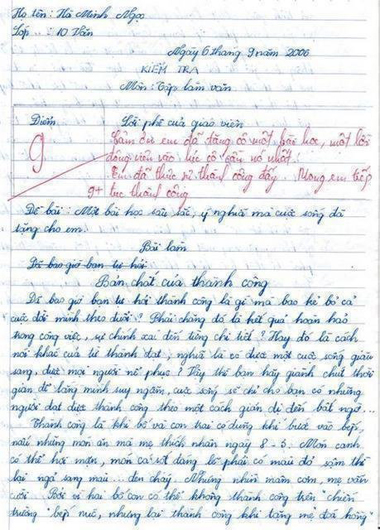 Họ tên: Hà Minh Ngọc
Lớp: 10 Văn
Ngày 6 tháng 9 năm 2006
KIỂM TRA
Môn: Tập làm văn
Điểm
Lời phê của giáo viên
9
Cảm ơn em đã tặng cô một bài học, một lời
động viên vào lúc cô cần nó nhất.
Em đã thực sự thành công đấy. Mong em tiếp
tục thành công
9+
Đề bài: Một bài học sâu sắc, ý nghĩa mà cuộc sống đã
tặng cho em.
Bài làm
Đã bao giờ bạn tự hỏi
Bản chất của thành công
Đã bao giờ bạn tự hỏi thành công là gì mà bao kẻ bỏ cả
cuộc đời mình theo đuổi? Phải chăng đó là kết quả hoàn hảo
trong công việc, sự chính xác đến từng chi tiết? Hay đó là cách
nói khác của từ thành đạt, nghĩa là có được một cuộc sống giàu
sang, được mọi người nể phục? Vậy thì bạn hãy giành chút thời
gian để lặng mình suy ngẫm, cuộc sống sẽ chỉ cho bạn có những
người đạt được thành công theo một cách giản dị đến bất ngờ...
Thành công là khi bố và con trai có dũng khí bước vào bếp,
nấu những món ăn mà mẹ thích nhân ngày 8-3. Món canh
có thể hơi mặn, món cá sốt đáng lẽ phải có màu đỏ sậm thì
lại ngả sang màu... đen cháy. Nhưng nhìn mâm cơm, mẹ vẫn
cười. Bởi vì hai bố con có thể không thành công trên "chiến
trường" bếp núc, nhưng lại thành công khi tặng mẹ "đoá hồng"